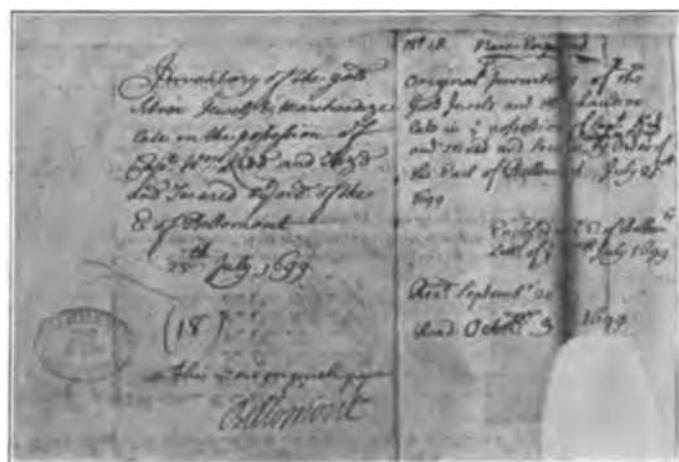 Inventory of the gold
Silver Jewels & Marchandize
late in the possession of
Capt. Wm Kidd and Seizd
and Secured by ord. of the
E of Bellomont
25th July 1699
(18)
this is an original paper
Bellomont
No. 18. New England
Original Inventory of the
Gold Jewels and
late in ye possession of Capt. Kid
and seized and secured by Order of
the Earl of Bellomont, July 25th
1699
E of Bellomt
Lettr of ye July 1699
Recd. Septembr 20
Read Octobr. 3 1699